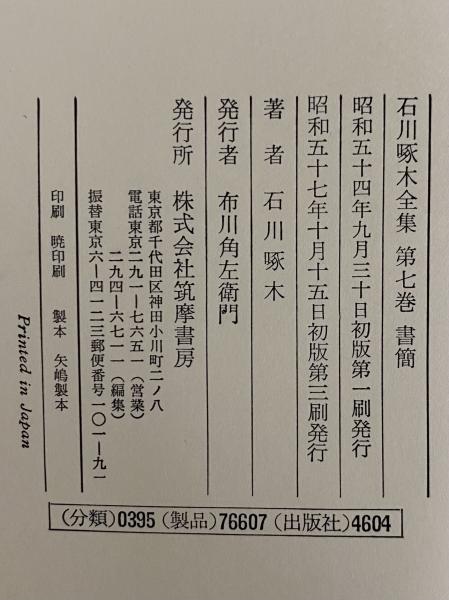 石川啄木全集 第七巻 書簡
昭和五十四年九月三十日初版第一刷発行
昭和五十七年十月十五日初版第三刷発行
著者 石川啄木
発行者 布川角左衛門
発行所 株式会社筑摩書房
東京都千代田区神田小川町二ノ八
電話東京二九一―七六五一(営業)
二九四―六七一一(編集)
振替東京六―四一二三郵便番号一〇一―九一
印刷 暁印刷 製本 矢嶋製本
Printed in Japan
(分類)0395(製品)76607(出版社)4604